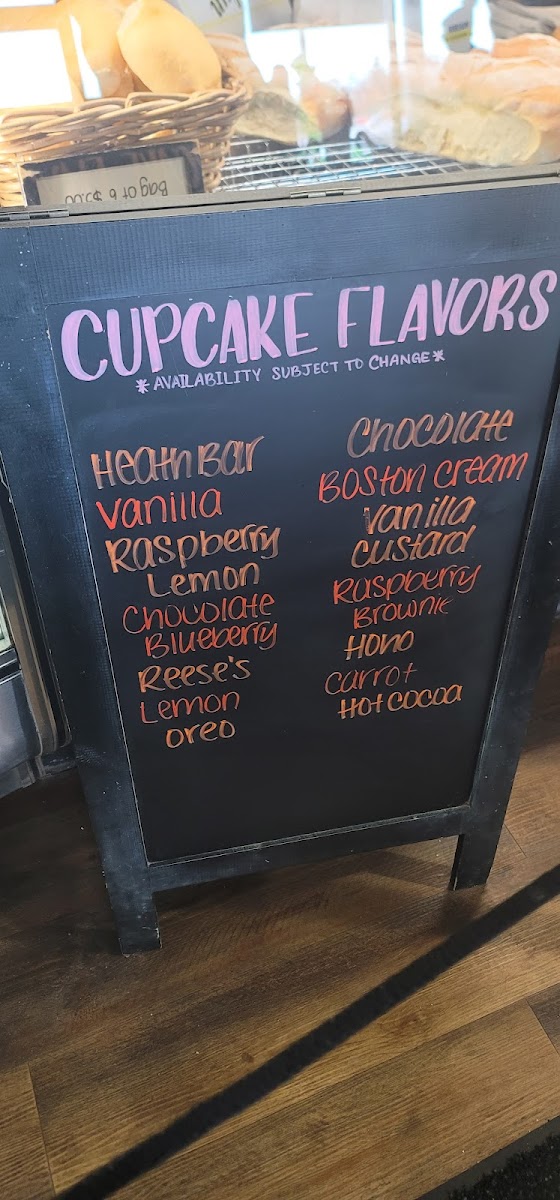 Bag of 6 $5.00
CUPCAKE FLAVORS
*AVAILABILITY SUBJECT TO CHANGE*
Heath Bar
Vanilla
Raspberry
Lemon
Chocolate
Blueberry
Reese's
Lemon
oreo
Chocolate
Boston Cream
Vanilla
Custard
Raspberry
Brownie
HoHo
Carrot
Hot Cocoa